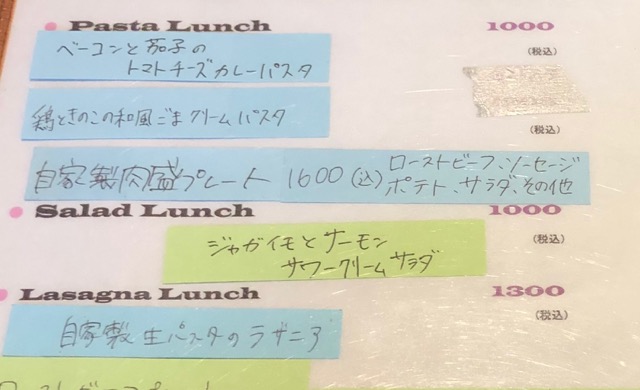 Pasta Lunch 1000
(税込)
ベーコンと茄子の
トマトチーズカレーパスタ
鶏ときのこの和風ごまクリームパスタ
(税込)
自家製肉盛プレート 1600(込) ローストビーフ、ソーセージ
ポテト、サラダ、その他
Salad Lunch 1000
(税込)
ジャガイモとサーモン
サワークリームサラダ
Lasagna Lunch 1300
(税込)
自家製生パスタのラザニア